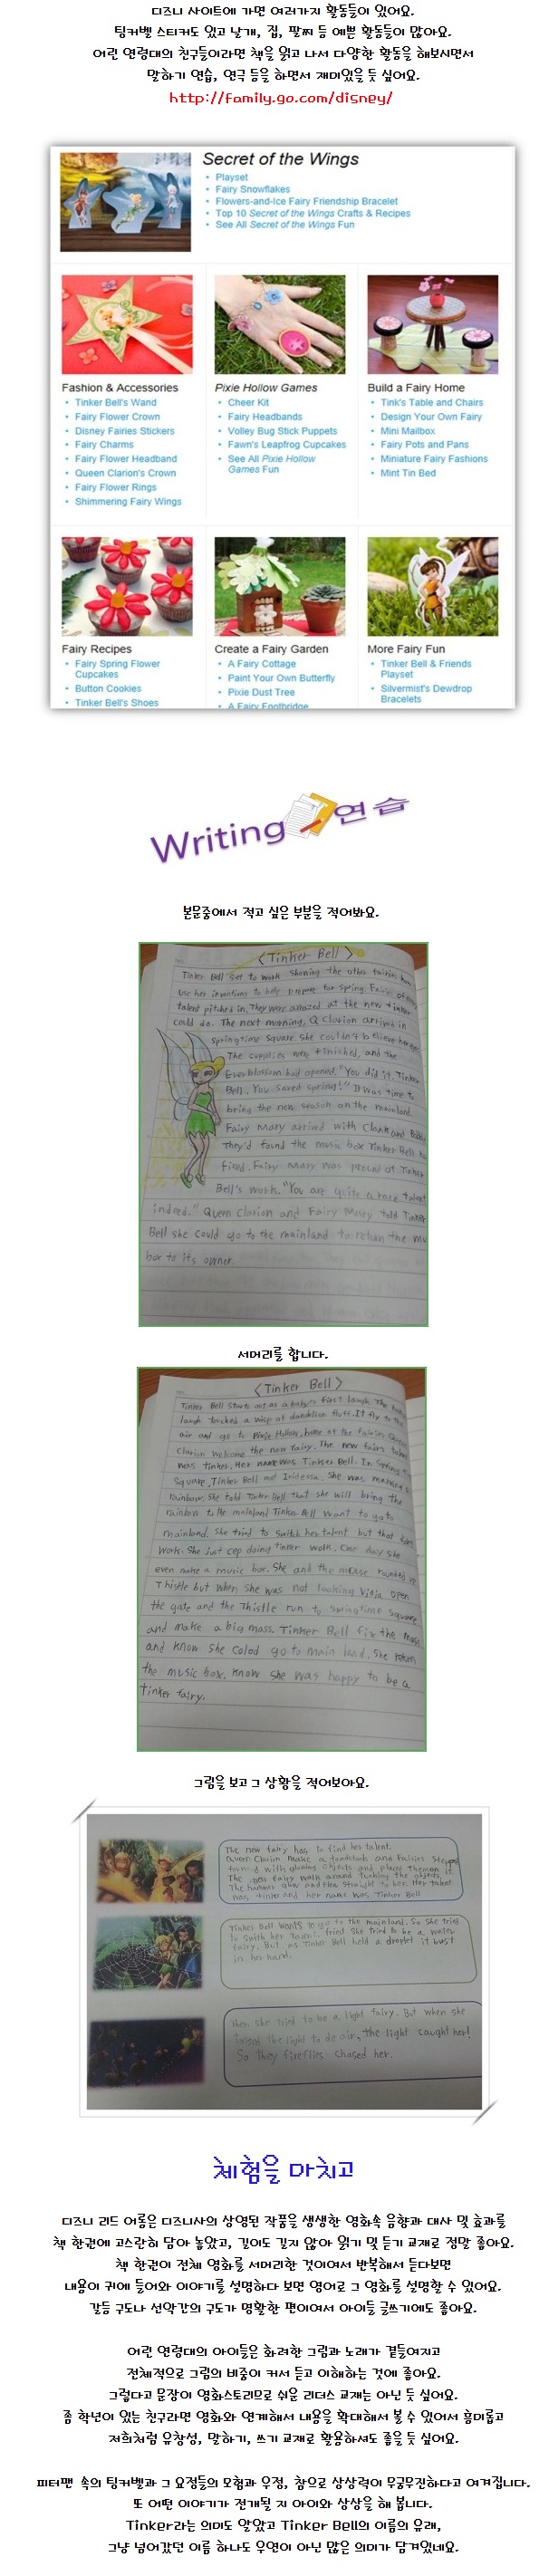 디즈니 사이트에 가면 여러가지 활동들이 있어요.
팅커벨 스티커도 있고 날개, 집, 팔찌 등 예쁜 활동들이 많아요.
어린 연령대의 친구들이라면 책을 읽고 나서 다양한 활동을 해보시면서
말하기 연습, 연극 등을 하면서 재미있을 듯 싶어요.
http://family.go.com/disney/
Secret of the Wings
• Playset
• Fairy Snowflakes
• Flowers-and-Ice Fairy Friendship Bracelet
• Top 10 Secret of the Wings Crafts & Recipes
• See All Secret of the Wings Fun
Fashion & Accessories
• Tinker Bell's Wand
• Fairy Flower Crown
• Disney Fairies Stickers
• Fairy Charms
• Fairy Flower Headband
• Queen Clarion's Crown
• Fairy Flower Rings
• Shimmering Fairy Wings
Pixie Hollow Games
• Cheer Kit
• Fairy Headbands
• Volley Bug Stick Puppets
• Fawn's Leapfrog Cupcakes
• See All Pixie Hollow
Games Fun
Build a Fairy Home
• Tink's Table and Chairs
• Design Your Own Fairy
• Mini Mailbox
• Fairy Pots and Pans
• Miniature Fairy Fashions
• Mint Tin Bed
Fairy Recipes
• Fairy Spring Flower
Cupcakes
• Button Cookies
• Tinker Bell's Shoes
Create a Fairy Garden
• A Fairy Cottage
• Paint Your Own Butterfly
• Pixie Dust Tree
• A Fairy Footbridge
More Fairy Fun
• Tinker Bell & Friends
Playset
• Silvermist's Dewdrop
Bracelets
Writing 연습
본문중에서 적고 싶은 부분을 적어봐요.
<Tinker Bell>
Tinker Bell set to work showing the other fairies how
use her inventions to help prepare for spring. Fairies of every
talent pitched in. They were amazed at the new tinker
could do. The next morning, Q Clarion arrived in
springtime square. She couldn't believe her eyes
The supplies were finished, and the
Everblossom had opened. "You did it, Tinker
Bell. You saved spring!" It was time to
bring the new season on the mainland.
Fairy Mary arrived with Clank and Bobble
They'd found the music box Tinker Bell had
fixed. Fairy Mary was proud of Tinker
Bell's work. "You are quite a rare talent
indeed." Queen Clarion and Fairy Mary told Tinker
Bell she could go to the mainland to return the mu
box to its owner.
서머리를 합니다.
<Tinker Bell>
Tinker Bell starts out as a babyes first laugh. The
laugh touched a wisp of dandelion fluff. It fly to the
air and go to Pixie Hollow, home of the fairies Queen
Clarion welcome the new fairy. The new fairs talent
was tinker. Her name was Tinkser Bell. In Spring
Square, Tinker Bell met Iridessa. She was making
rainbow. She told Tinker Bell that she will bring the
rainbow to the mainland Tinker Bell want to go to
mainland. She tried to switch her talent but that
work. She just cep doing tinker work. One day she
even make a music box. She and the mouse rounded up
Thistle but when she was not looking Vidia open
the gate and the Thistle run to springtime square
and make a big mass. Tinker Bell fix the mass
and know she colod go to main land. She return
the music box. Know she was happy to be a
tinker fairy.
그림을 보고 그 상황을 적어보아요.
The new fairy has to find her talent.
Queen Clarion make a toadstools and Fairies Stepped
forward with glowing objects and placed them on it
The new fairy walk around tuching the objects.
The hammer glow and flew straight to her. Her talent
was tinker and her name was Tinker Bell
Tinker Bell wants to go to the mainland. So she tried
to swith her talent. First She tried to be a water
fairy. But as Tinker Bell held a droplet it bust
in her hand.
Then she tried to be a light fairy. But when she
tossed the light to de air, the light caught her!
So they fireflies chased her.
체험을 마치고
디즈니 리드 어롱은 디즈니사의 상영된 작품을 생생한 영화속 음향과 대사 및 효과를
책 한권에 고스란히 담아 놓았고, 길이도 길지 않아 읽기 및 듣기 교재로 정말 좋아요.
책 한권이 전체 영화를 서머리한 것이여서 반복해서 듣다보면
내용이 귀에 들어와 이야기를 설명하다 보면 영어로 그 영화를 설명할 수 있어요.
갈등 구도나 선악간의 구도가 명확한 편이여서 아이들 글쓰기에도 좋아요.
어린 연령대의 아이들은 화려한 그림과 노래가 곁들여지고
전체적으로 그림의 비중이 커서 듣고 이해하는 것에 좋아요.
그렇다고 문장이 영화스토리므로 쉬운 리더스 교재는 아닌 듯 싶어요.
좀 학년이 있는 친구라면 영화와 연계해서 내용을 확대해서 볼 수 있어서 흥미롭고
저희처럼 유창성, 말하기, 쓰기 교재로 활용하셔도 좋을 듯 싶어요.
피터팬 속의 팅커벨과 그 요정들의 모험과 우정, 참으로 상상력이 무궁무진하다고 여겨집니다.
또 어떤 이야기가 전개될 지 아이와 상상을 해 봅니다.
Tinker라는 의미도 알았고 Tinker Bell의 이름의 유래,
그냥 넘어갔던 이름 하나도 우연이 아닌 많은 의미가 담겨있네요.